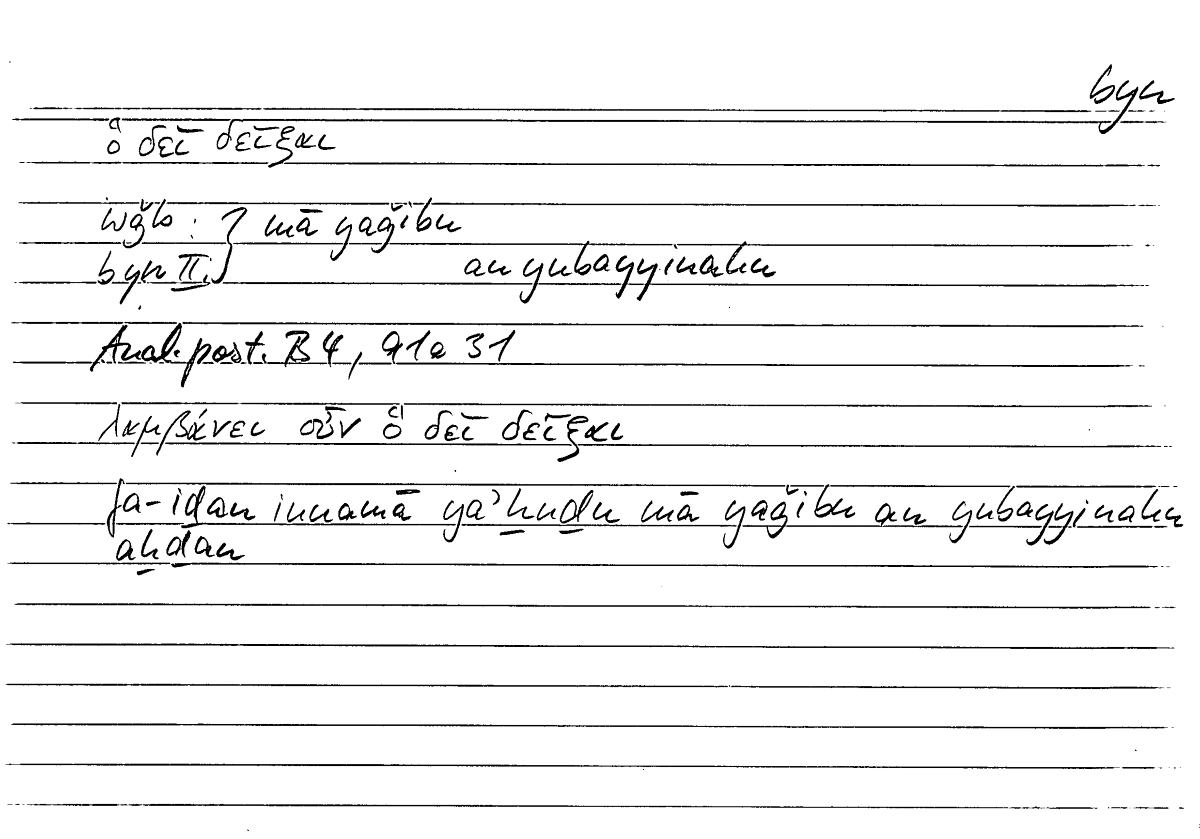 byn
ὃ δεῖ δεῖξαι
wǧb : } mā yaǧibu
byn II. } an yubayyinahu
Anal. post. B 4, 91a 31
λαμβάνει οὖν ὃ δεῖ δεῖξαι
fa-iḏan innamā ya’ḫuḏu mā yaǧibu an yubayyinahu
aḫḏan